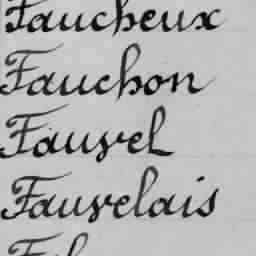 Faucheux
Fauchon
Fauvel
Fauvelais